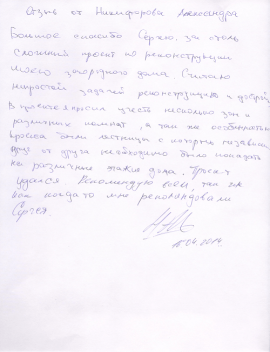 Отзыв от Никифорова Александра
Большое спасибо Сергею, за столь
сложный проект по реконструкции
моего загородного дома. Считаю
непростой задачей реконструкцию и
В
просил учесть несколько зон и
различных комнат, а так же особенностью
проекта были лестницы с которых независимо
друг от друга необходимо было попадать
на различные этажи дома. Проект
удался. Рекомендую всем, так же
как когда-то мне рекомендовали
Сергея.